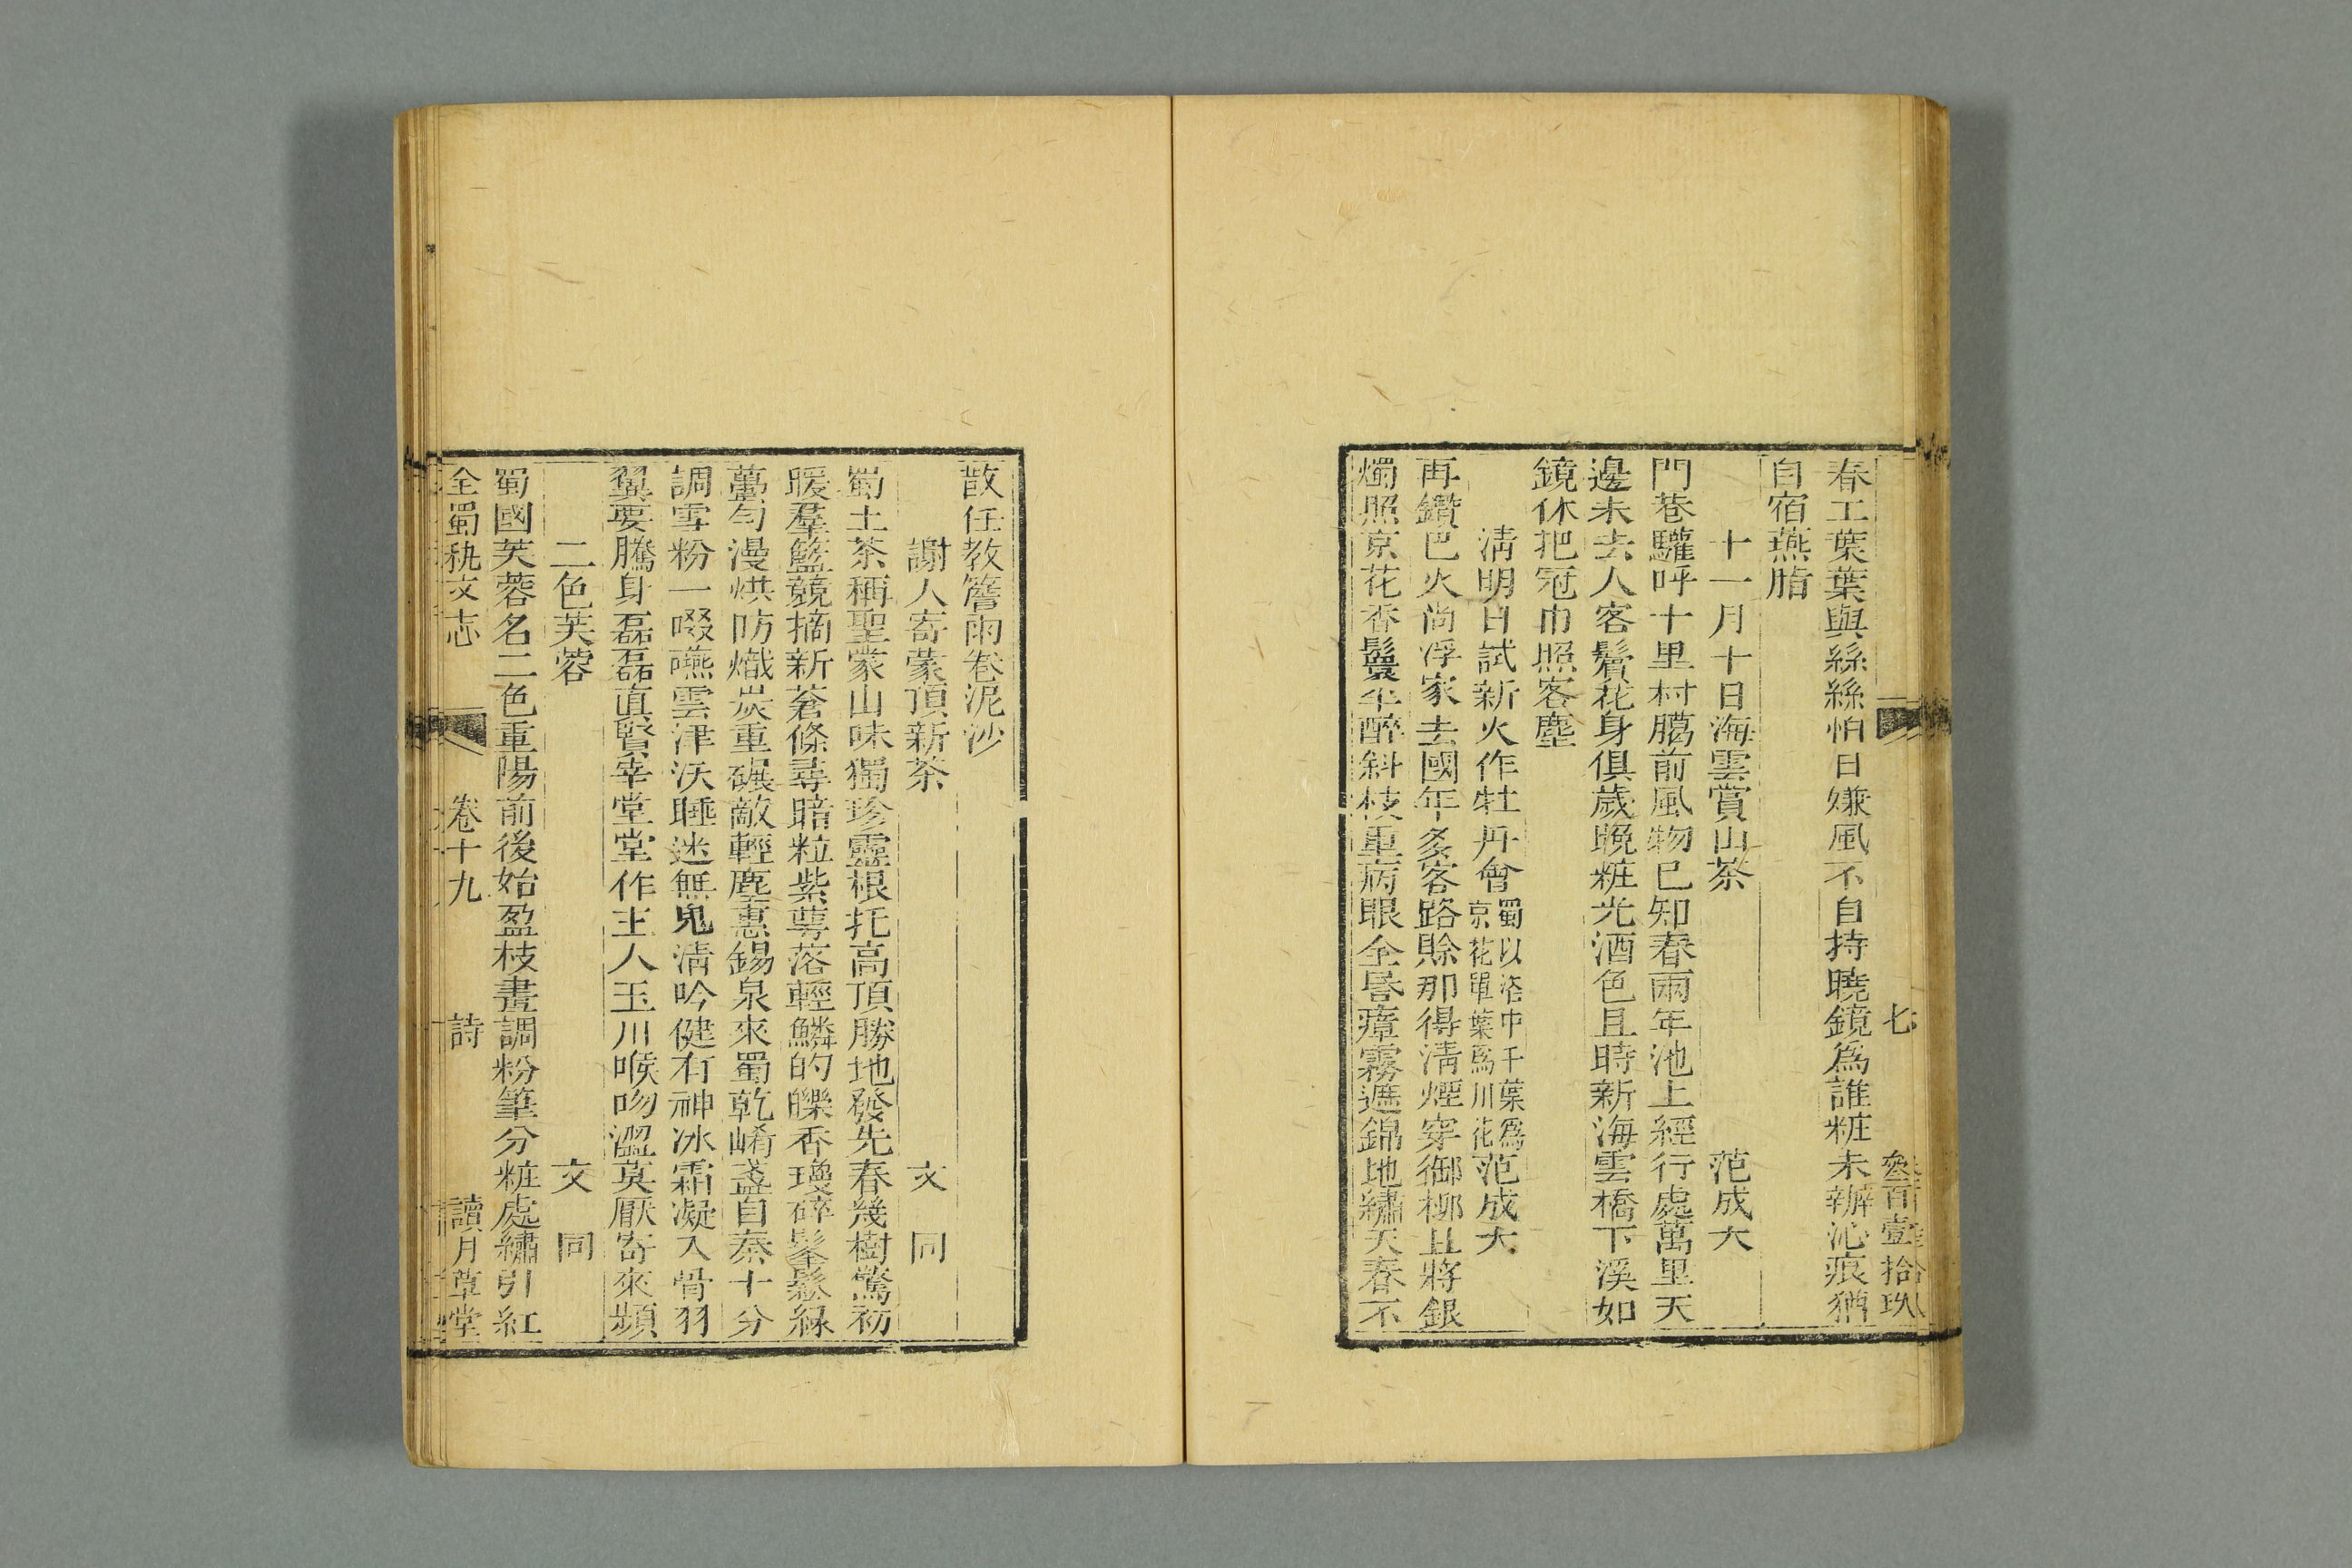 七 叄百壹拾玖
春工葉葉與絲絲怕日嫌風不自持曉鏡爲誰粧未辦沁痕猶
自宿燕脂
十一月十日海雲賞山茶 范成大
門巷驩呼十里村臈前風物已知春兩年池上經行處萬里天
邊未去人客鬢花身俱歲晚粧光酒色且時新海雲橋下溪如
鏡休把冠巾照客塵
淸明日試新火作牡丹會 蜀以洛中千葉爲京花單葉爲川花 范成大
再鑽巴火尚浮家去國年多客路賖那得淸煙穿御柳且將銀
燭照京花香鬟半醉斜枝重病眼全昏瘴霧遮錦地繡天春不
散任教簷雨卷泥沙
謝人寄蒙頂新茶 文同
蜀土茶稱聖蒙山味獨珍靈根托高頂勝地發先春幾樹驚初
暖羣籃競摘新蒼條尋暗粒紫萼落輕鱗的皪香瓊碎鬖鬆綠
蠆勻漫烘防熾炭重碾敵輕塵惠錫泉來蜀乾崤盞自秦十分
調雪粉一啜嚥雲津沃睡迷無鬼淸吟健有神冰霜凝入骨羽
翼要騰身磊磊眞賢宰堂堂作主人玉川喉吻澀莫厭寄來頻
二色芙蓉 文同
蜀國芙蓉名二色重陽前後始盈枝畫調粉筆分粧處繡引紅
全蜀秇文志 卷十九 詩 讀月草堂